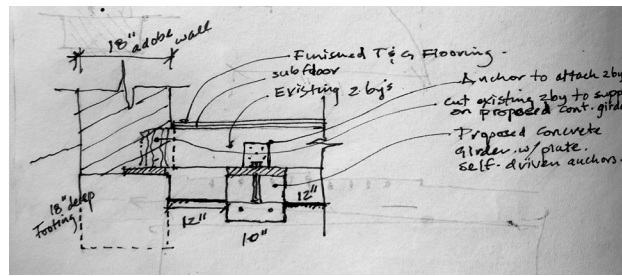 18" adobe wall
Finished T & G Flooring.
subfloor
Existing 2 by's
Anchor to attach 2by
cut existing 2by to supp
on proposed cont. gird
Proposed concrete
girder w/ plate
self-driven anchors.
18" deep
Footing
12"
12"
10"